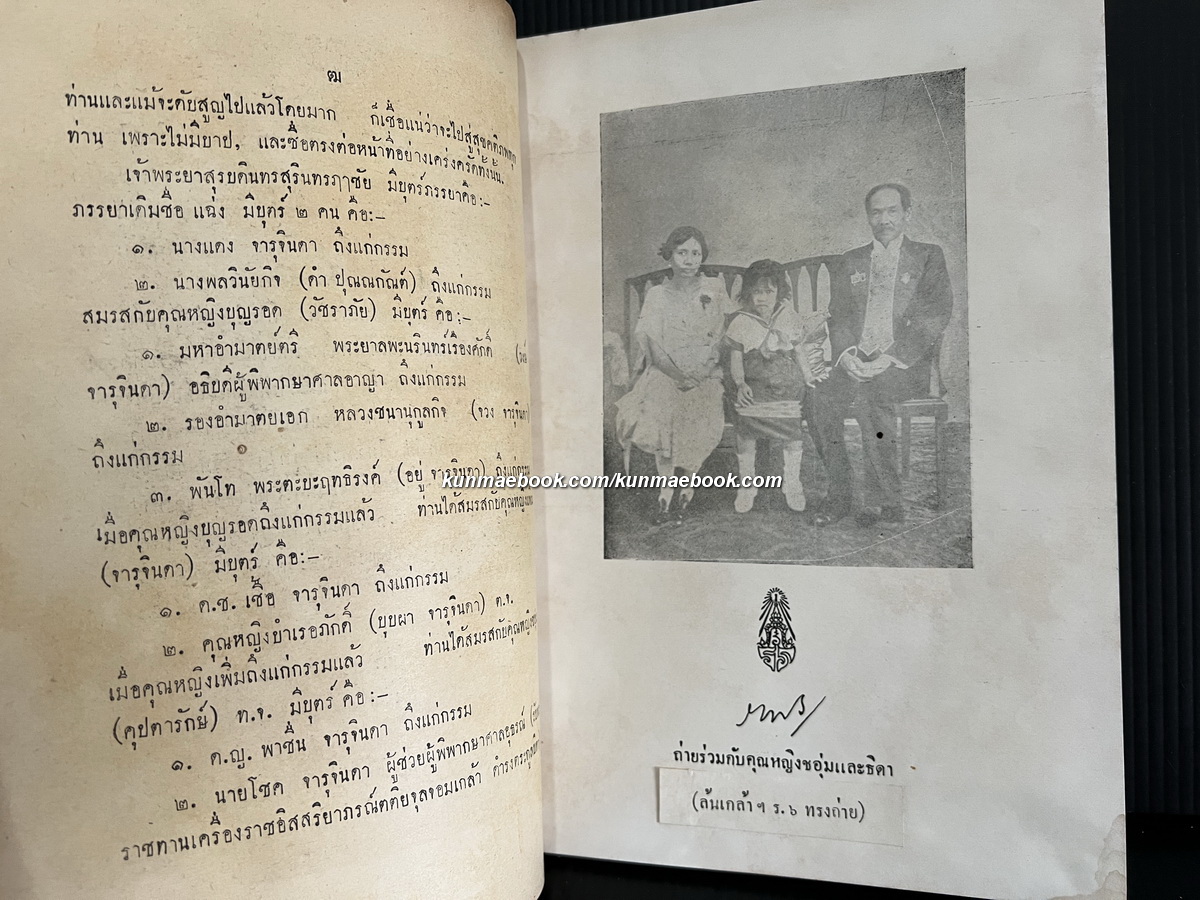 ฒ
ท่านและแม้จะดับสูญไปแล้วโดยมาก ก็เชื่อแน่ว่าจะไปสู่สุขคติภพทุก
ท่าน เพราะไม่มีบาป, และซื่อตรงต่อหน้าที่อย่างเคร่งครัดทั้งนั้น.
เจ้าพระยาสุรบดินทรสุรินทรฦๅชัย มีบุตร์ภรรยาคือ:–
ภรรยาเดิมชื่อ แฉ่ง มีบุตร์ ๒ คน คือ:–
๑. นางแดง จารุจินดา ถึงแก่กรรม
๒. นางพลวินัยกิจ (ดำ ปุณณกัณต์) ถึงแก่กรรม
สมรสกับคุณหญิงบุญรอด (วัชราภัย) มีบุตร์ คือ:–
๑. มหาอำมาตย์ตรี พระยาลพะนรินทร์เรืองศักดิ์
จารุจินดา) อธิบดีผู้พิพากษาศาลอาญา ถึงแก่กรรม
๒. รองอำมาตยเอก หลวงชนานุกูลกิจ (จวง จารุจินดา)
ถึงแก่กรรม
๓. พันโท พระตะบะฤทธิรงค์ (อยู่ จารุจินดา) ถึงแก่กรรม
เมื่อคุณหญิงบุญรอดถึงแก่กรรมแล้ว ท่านได้สมรสกับคุณหญิง
(จารุจินดา) มีบุตร์ คือ:–
๑. ด.ช. เชื้อ จารุจินดา ถึงแก่กรรม
๒. คุณหญิงบำเรอภักดิ์ (บุบผา จารุจินดา) ต.จ.
เมื่อคุณหญิงเพิ่มถึงแก่กรรมแล้ว ท่านได้สมรสกับคุณหญิง
(คุปตารักษ์) ท.จ. มีบุตร์ คือ:–
๑. ด.ญ. พาชื่น จารุจินดา ถึงแก่กรรม
๒. นายโชค จารุจินดา ผู้ช่วยผู้พิพากษาศาลอุธรณ์
ราชทานเครื่องราชอิสสริยาภรณ์ตติยจุลจอมเกล้า ดำรงตระกูล
kunmaebook.com/kunmaebook.com
ถ่ายร่วมกับคุณหญิงชอุ่มและธิดา
(ล้นเกล้า ฯ ร. ๖ ทรงถ่าย)